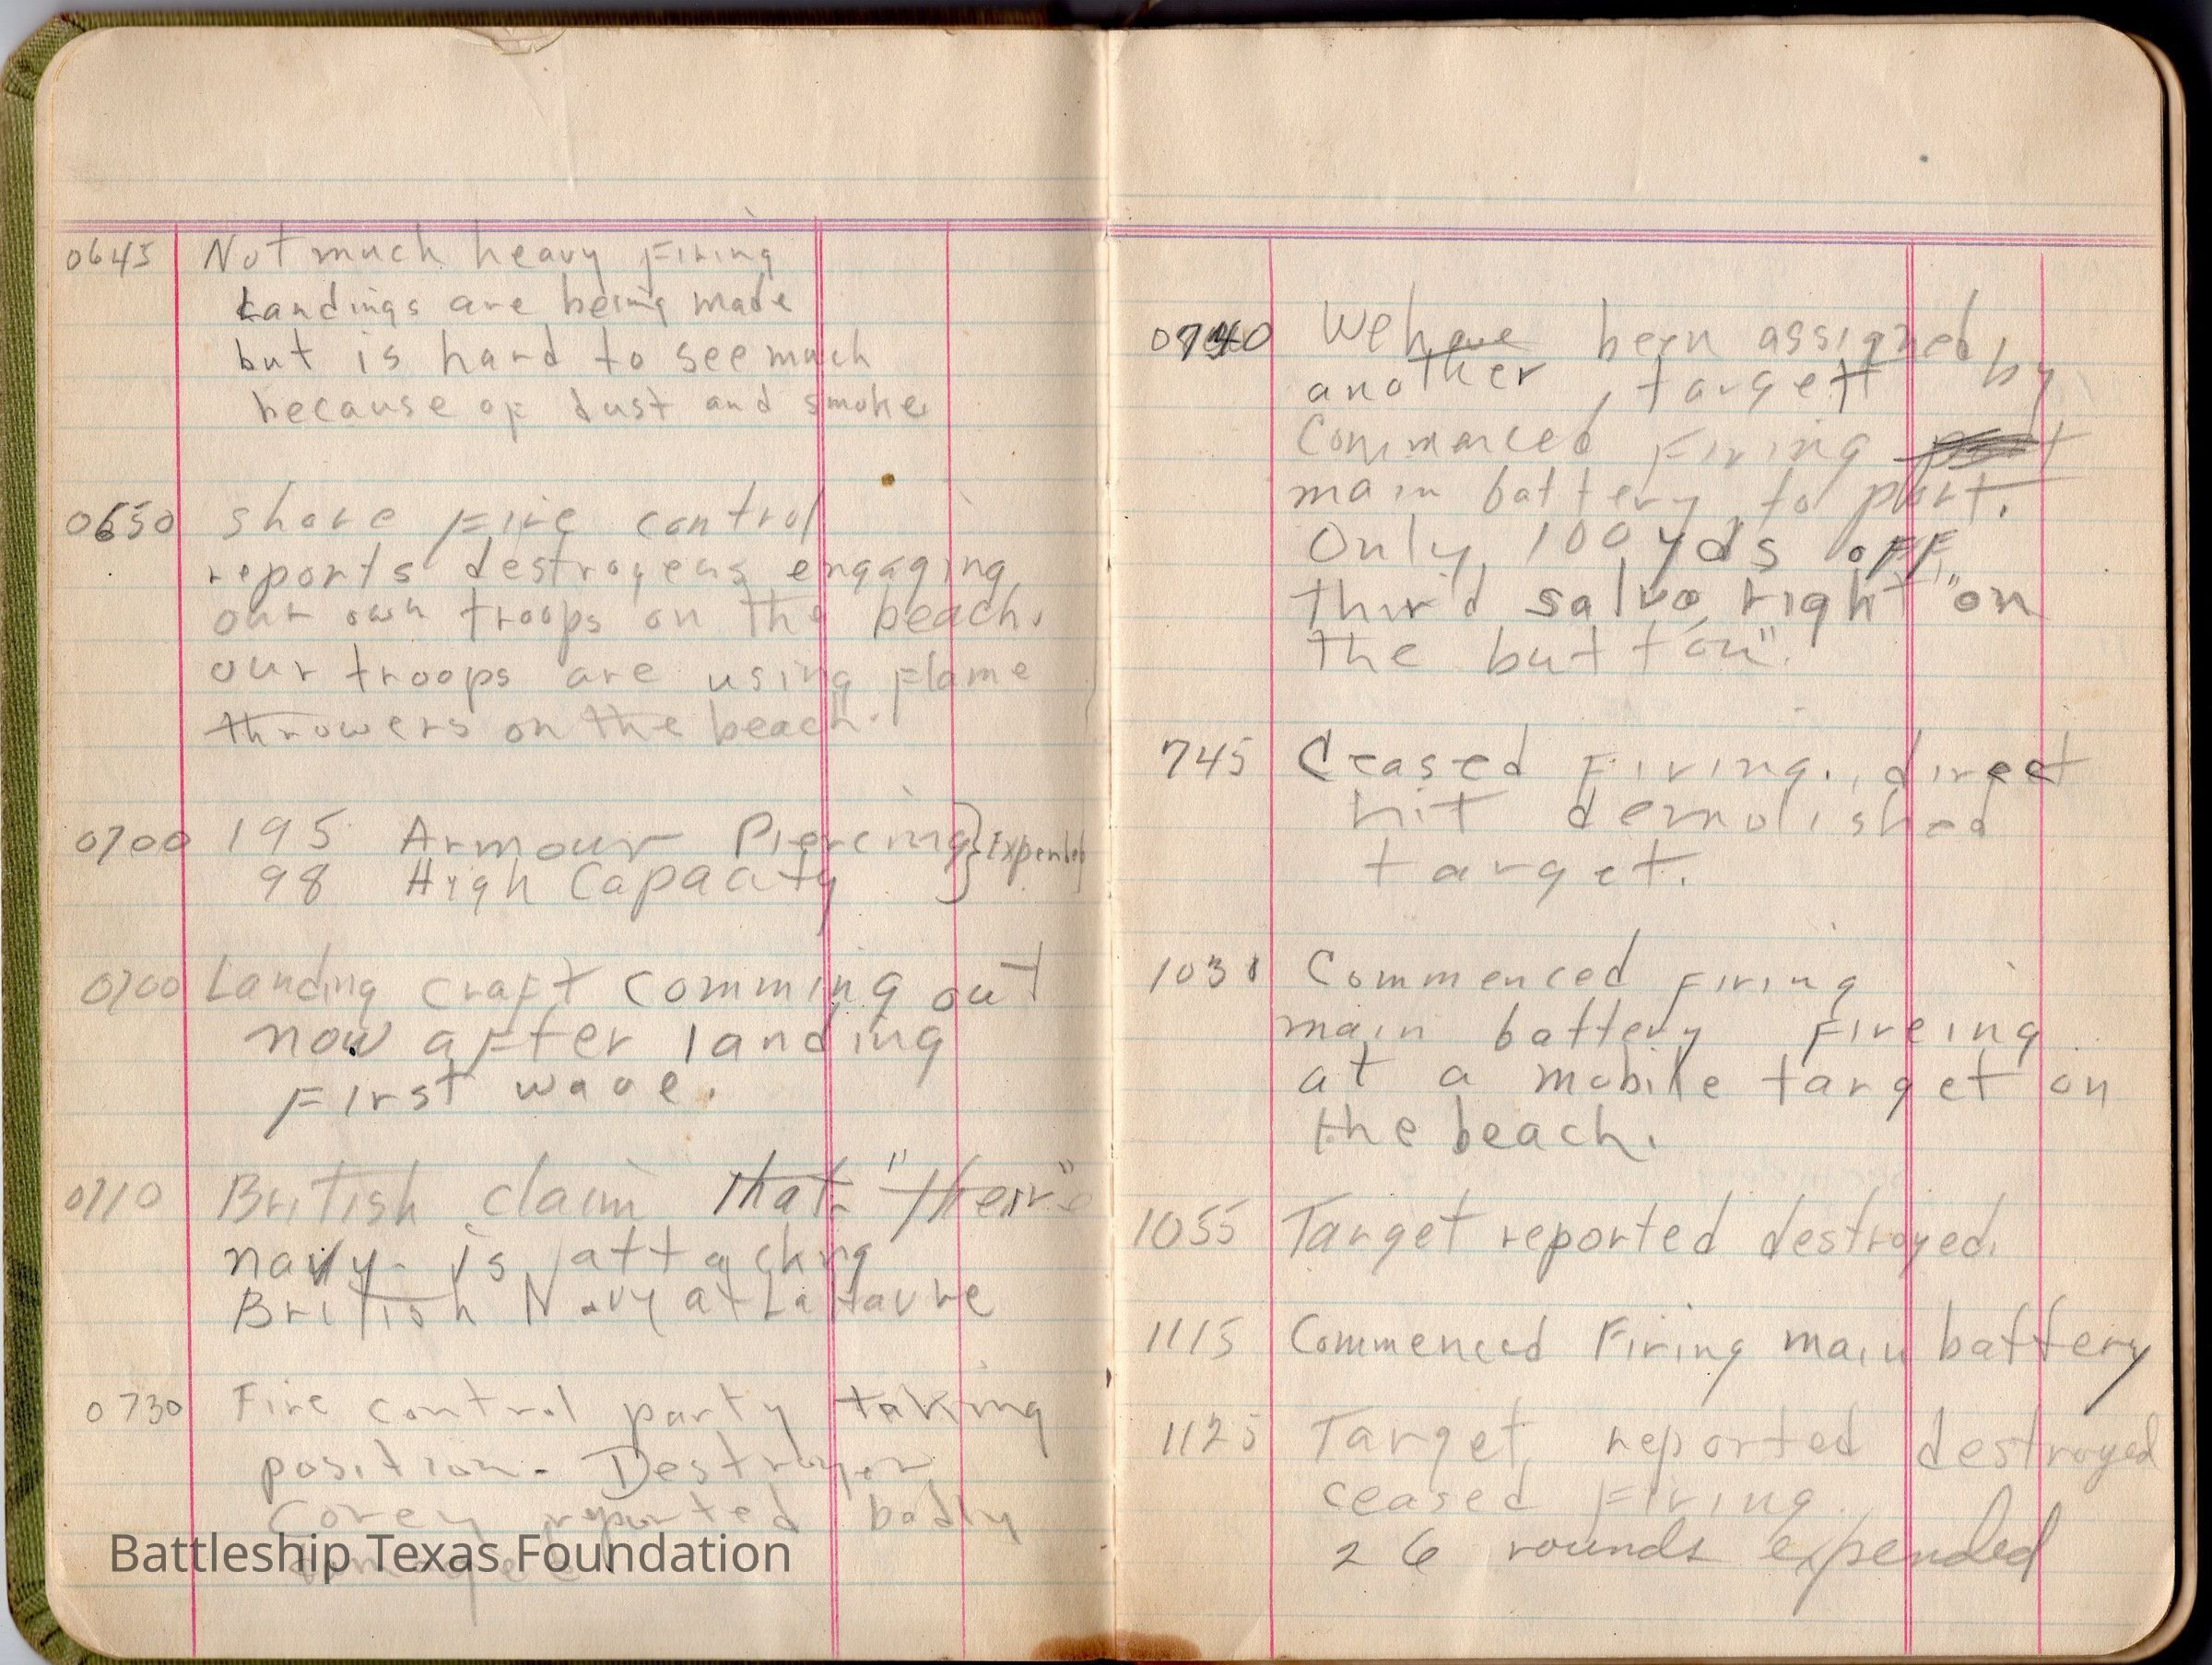 0645 Not much heavy Firing
Landings are being made
but is hard to see much
because of dust and smoke.
0650 shore Fire control
reports destroyers engaging
our own troops on the beach.
our troops are using Flame
throwers on the beach.
0700 195 Armour Piercing } Expended
98 High Capacity
0700 Landing craft comming out
now after landing
First wave.
0710 British claim that "their"
navy - is attacking
British Navy at La Havre
0730 Fire control party taking
position - Destroyer
Corey reported badly
damaged.
Battleship Texas Foundation
0740 We have been assigned
another, targett by
Commanced Firing
main battery to port.
Only 100 yds oFF,
third salvo right "on
the button".
745 Ceased Firing., direct
hit demolished
target.
1031 Commenced Firing
main battery Fireing
at a mobile target on
the beach.
1055 Target reported destroyed.
1115 Commenced Firing main battery
1125 Target reported destroyed
ceased Firing.
26 rounds expended